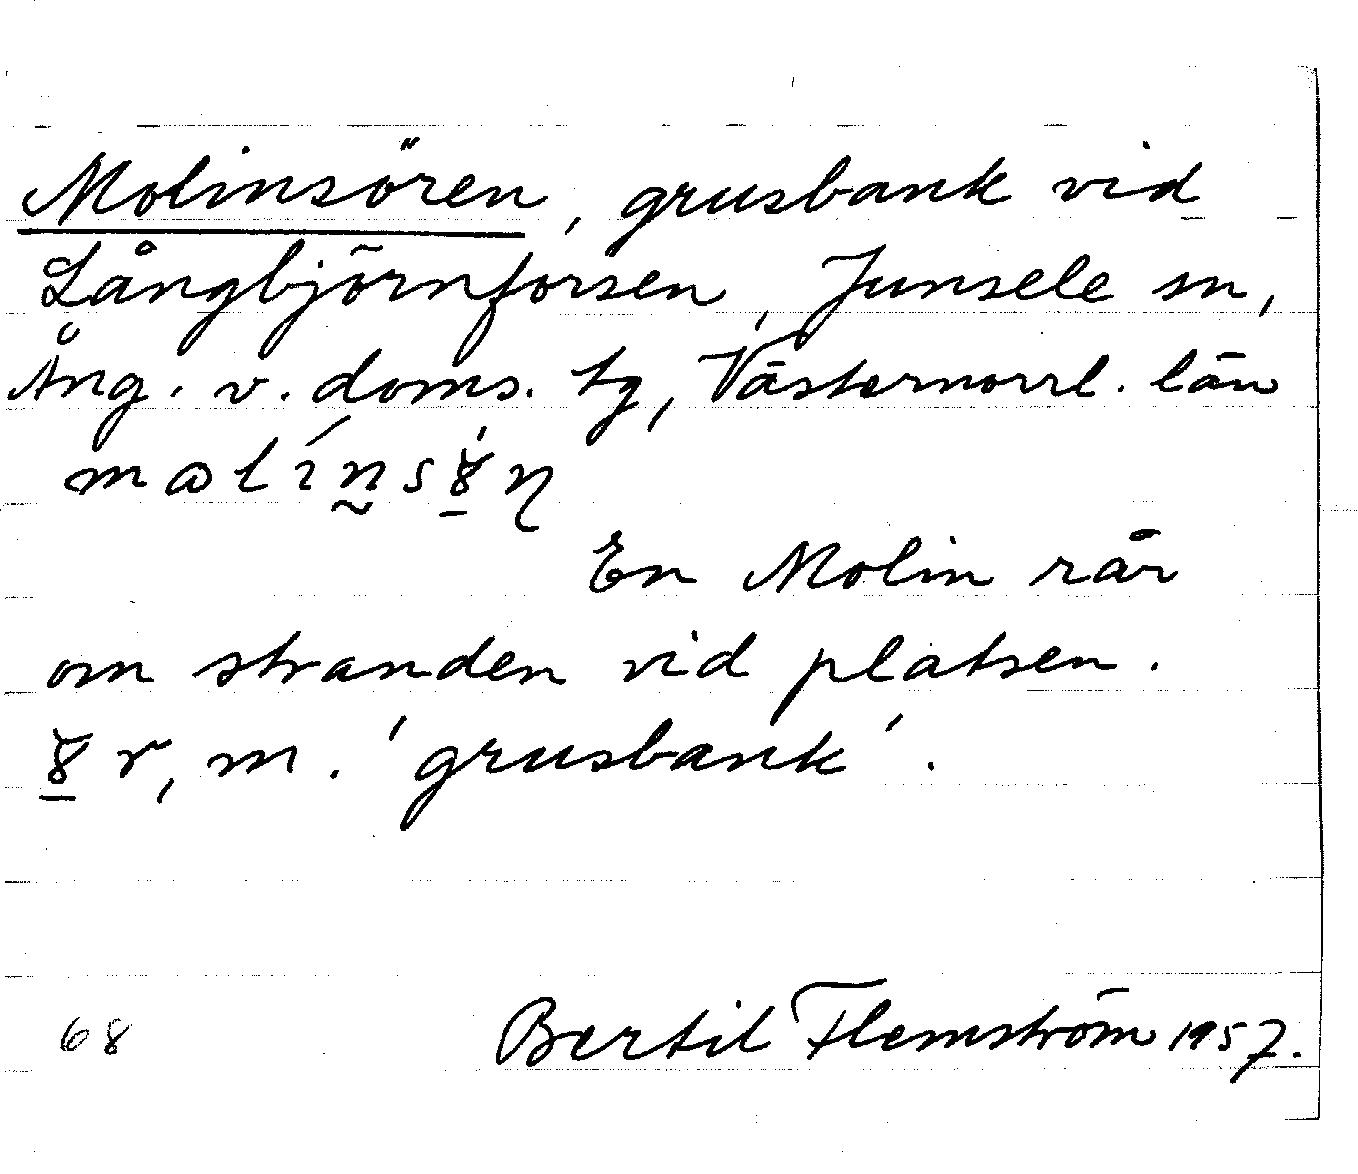 Molinsören, grusbank vid
Långbjörnforsen, Junsele sn,
Ång. v. doms. tg, Västernorrl. län
En Molin rår
om stranden vid platsen.
r, m. 'grusbank'.
68 Bertil Flemström 1957.